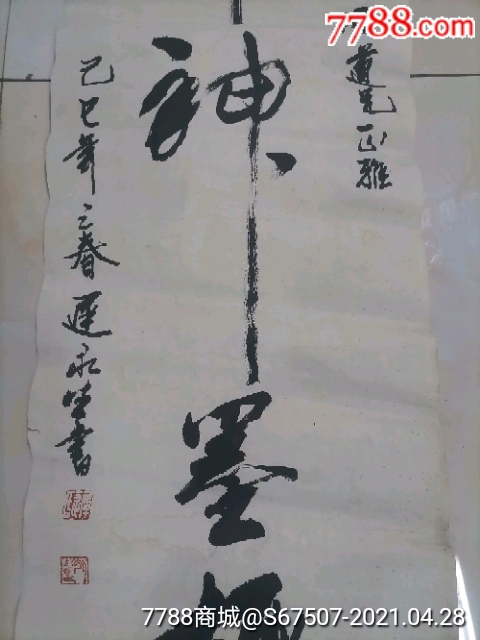 7788.com
道兄正雅
神墨
己巳年之春遲永生書
7788商城@S67507-2021.04.28